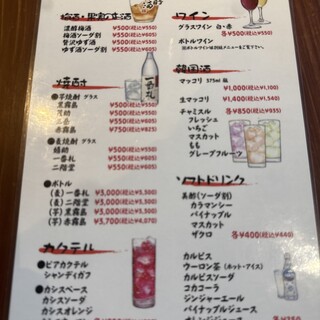 梅酒・果実のお酒
濃醇梅酒 ¥500(税込¥550)
梅酒ソーダ割 ¥550(税込¥605)
贅沢ゆず酒 ¥500(税込¥550)
ゆず酒ソーダ割 ¥550(税込¥605)
焼酎
●芋焼酎 グラス
黒霧島 ¥500(税込¥550)
¥500(税込¥550)
¥550(税込¥605)
赤霧島 ¥750(税込¥825)
●麦焼酎 グラス
一番札
二階堂 ¥550(税込¥605)
●ボトル
(麦)一番札 ¥3,000(税込¥3,300)
(麦)二階堂 ¥3,000(税込¥3,300)
(芋)黒霧島 ¥3,000(税込¥3,300)
(芋)赤霧島 ¥3,700(税込¥4,070)
カクテル
●ビアカクテル
シャンディガフ
●カシスベース
カシスソーダ
カシスオレンジ
ワイン
グラスワイン 白・赤
各¥500(税込¥550)
ボトルワイン
韓国酒
マッコリ 375ml 瓶
¥1,000(税込¥1,100)
生マッコリ ¥1,400(税込¥1,540)
チャミスル 各¥850(税込¥935)
フレッシュ
いちご
マスカット
もも
グレープフルーツ
ソフトドリンク
美酢(ソーダ割)
カラマンシー
パイナップル
マスカット
ザクロ 各¥400(税込¥440)
カルピス
ウーロン茶(ホット・アイス)
カルピスソーダ
コカコーラ
ジンジャーエール
パイナップルジュース
オレンジジュース